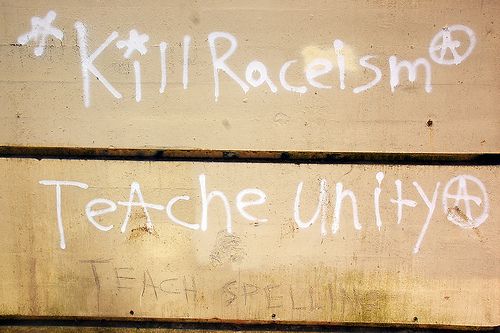 *Kill Raceism Ⓐ
TeAche UnityⒶ
TEACH SPELLING